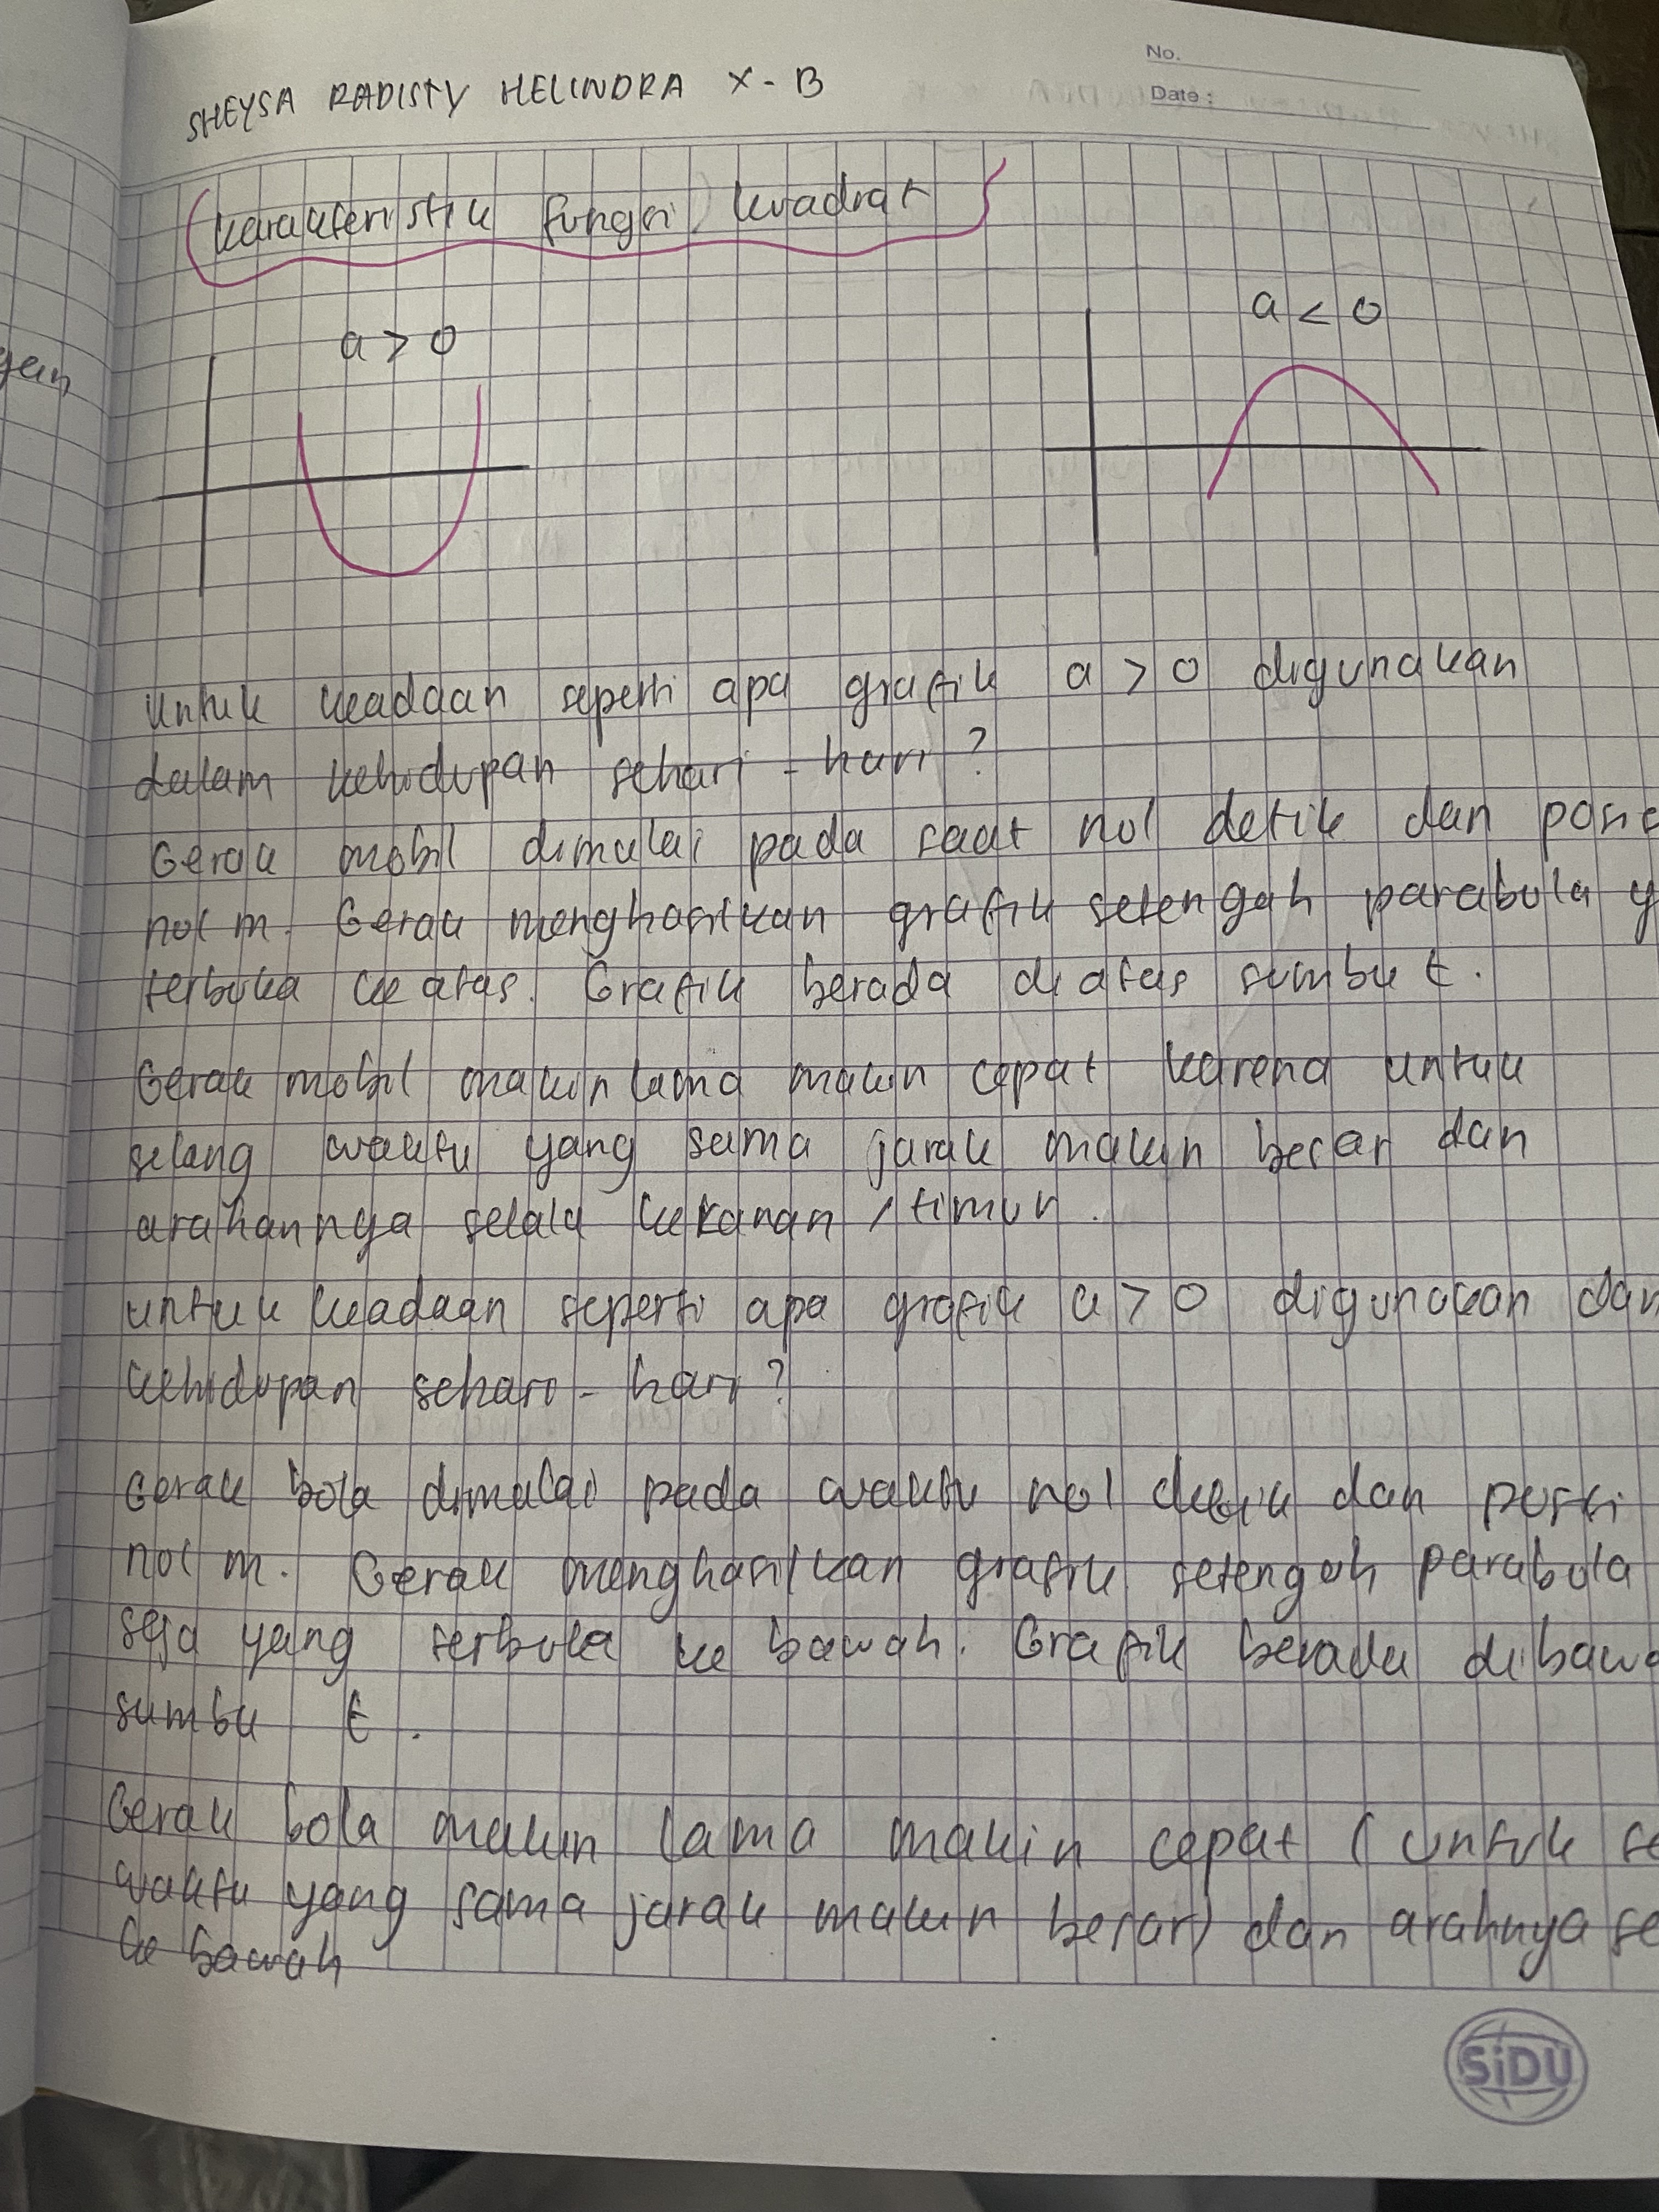 No.
Date :
SHEYSA RADISTY HELINDRA X - B
karakteristik fungsi kuadrat
a > 0
a < 0
untuk keadaan seperti apa grafik a > 0 digunakan
dalam kehidupan sehari - hari ?
Gerak mobil dimulai pada saat nol detik dan posis
nol m. Gerak menghasilkan grafik setengah parabola y
terbuka ke atas. Grafik berada di atas sumbu t.
Gerak mobil makin lama makin cepat karena untuk
selang waktu yang sama jarak makin besar dan
arahannya selalu kekanan / timur.
untuk keadaan seperti apa grafik a > 0 digunakan dan
kehidupan sehari - hari ?
Gerak bola dimulai pada waktu nol detik dan
nol m. Gerak menghasilkan grafik setengah parabola
saja yang terbuka ke bawah. Grafik berada dibawa
sumbu t.
Gerak bola makin lama makin cepat ( untuk se
waktu yang sama jarak makin besar) dan arahnya se
ke bawah
gan
SiDU